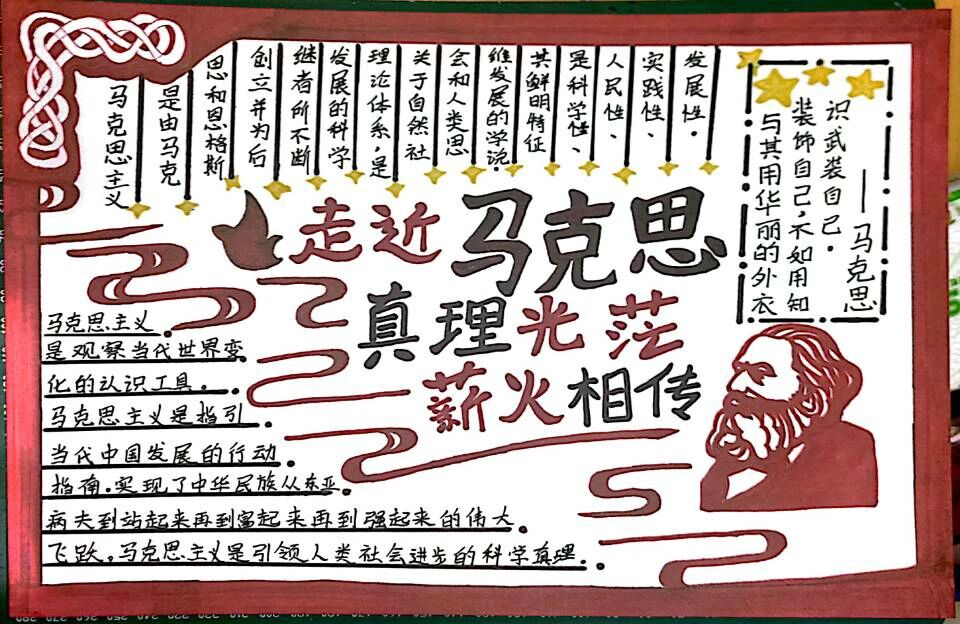 马克思主义
是由马克
思和恩格斯
创立并为后
继者所不断
发展的科学
理论体系,是
关于自然社
会和人类思
维发展的学说.
其鲜明特征
是科学性、
人民性、
实践性、
发展性.
与其用华丽的外衣
装饰自己,不如用知
识武装自己.
——马克思
走近马克思
真理光茫
薪火相传
马克思主义
是观察当代世界变
化的认识工具.
马克思主义是指引
当代中国发展的行动
指南.实现了中华民族从东亚
病夫到站起来再到富起来再到强起来的伟大
飞跃。马克思主义是引领人类社会进步的科学真理.